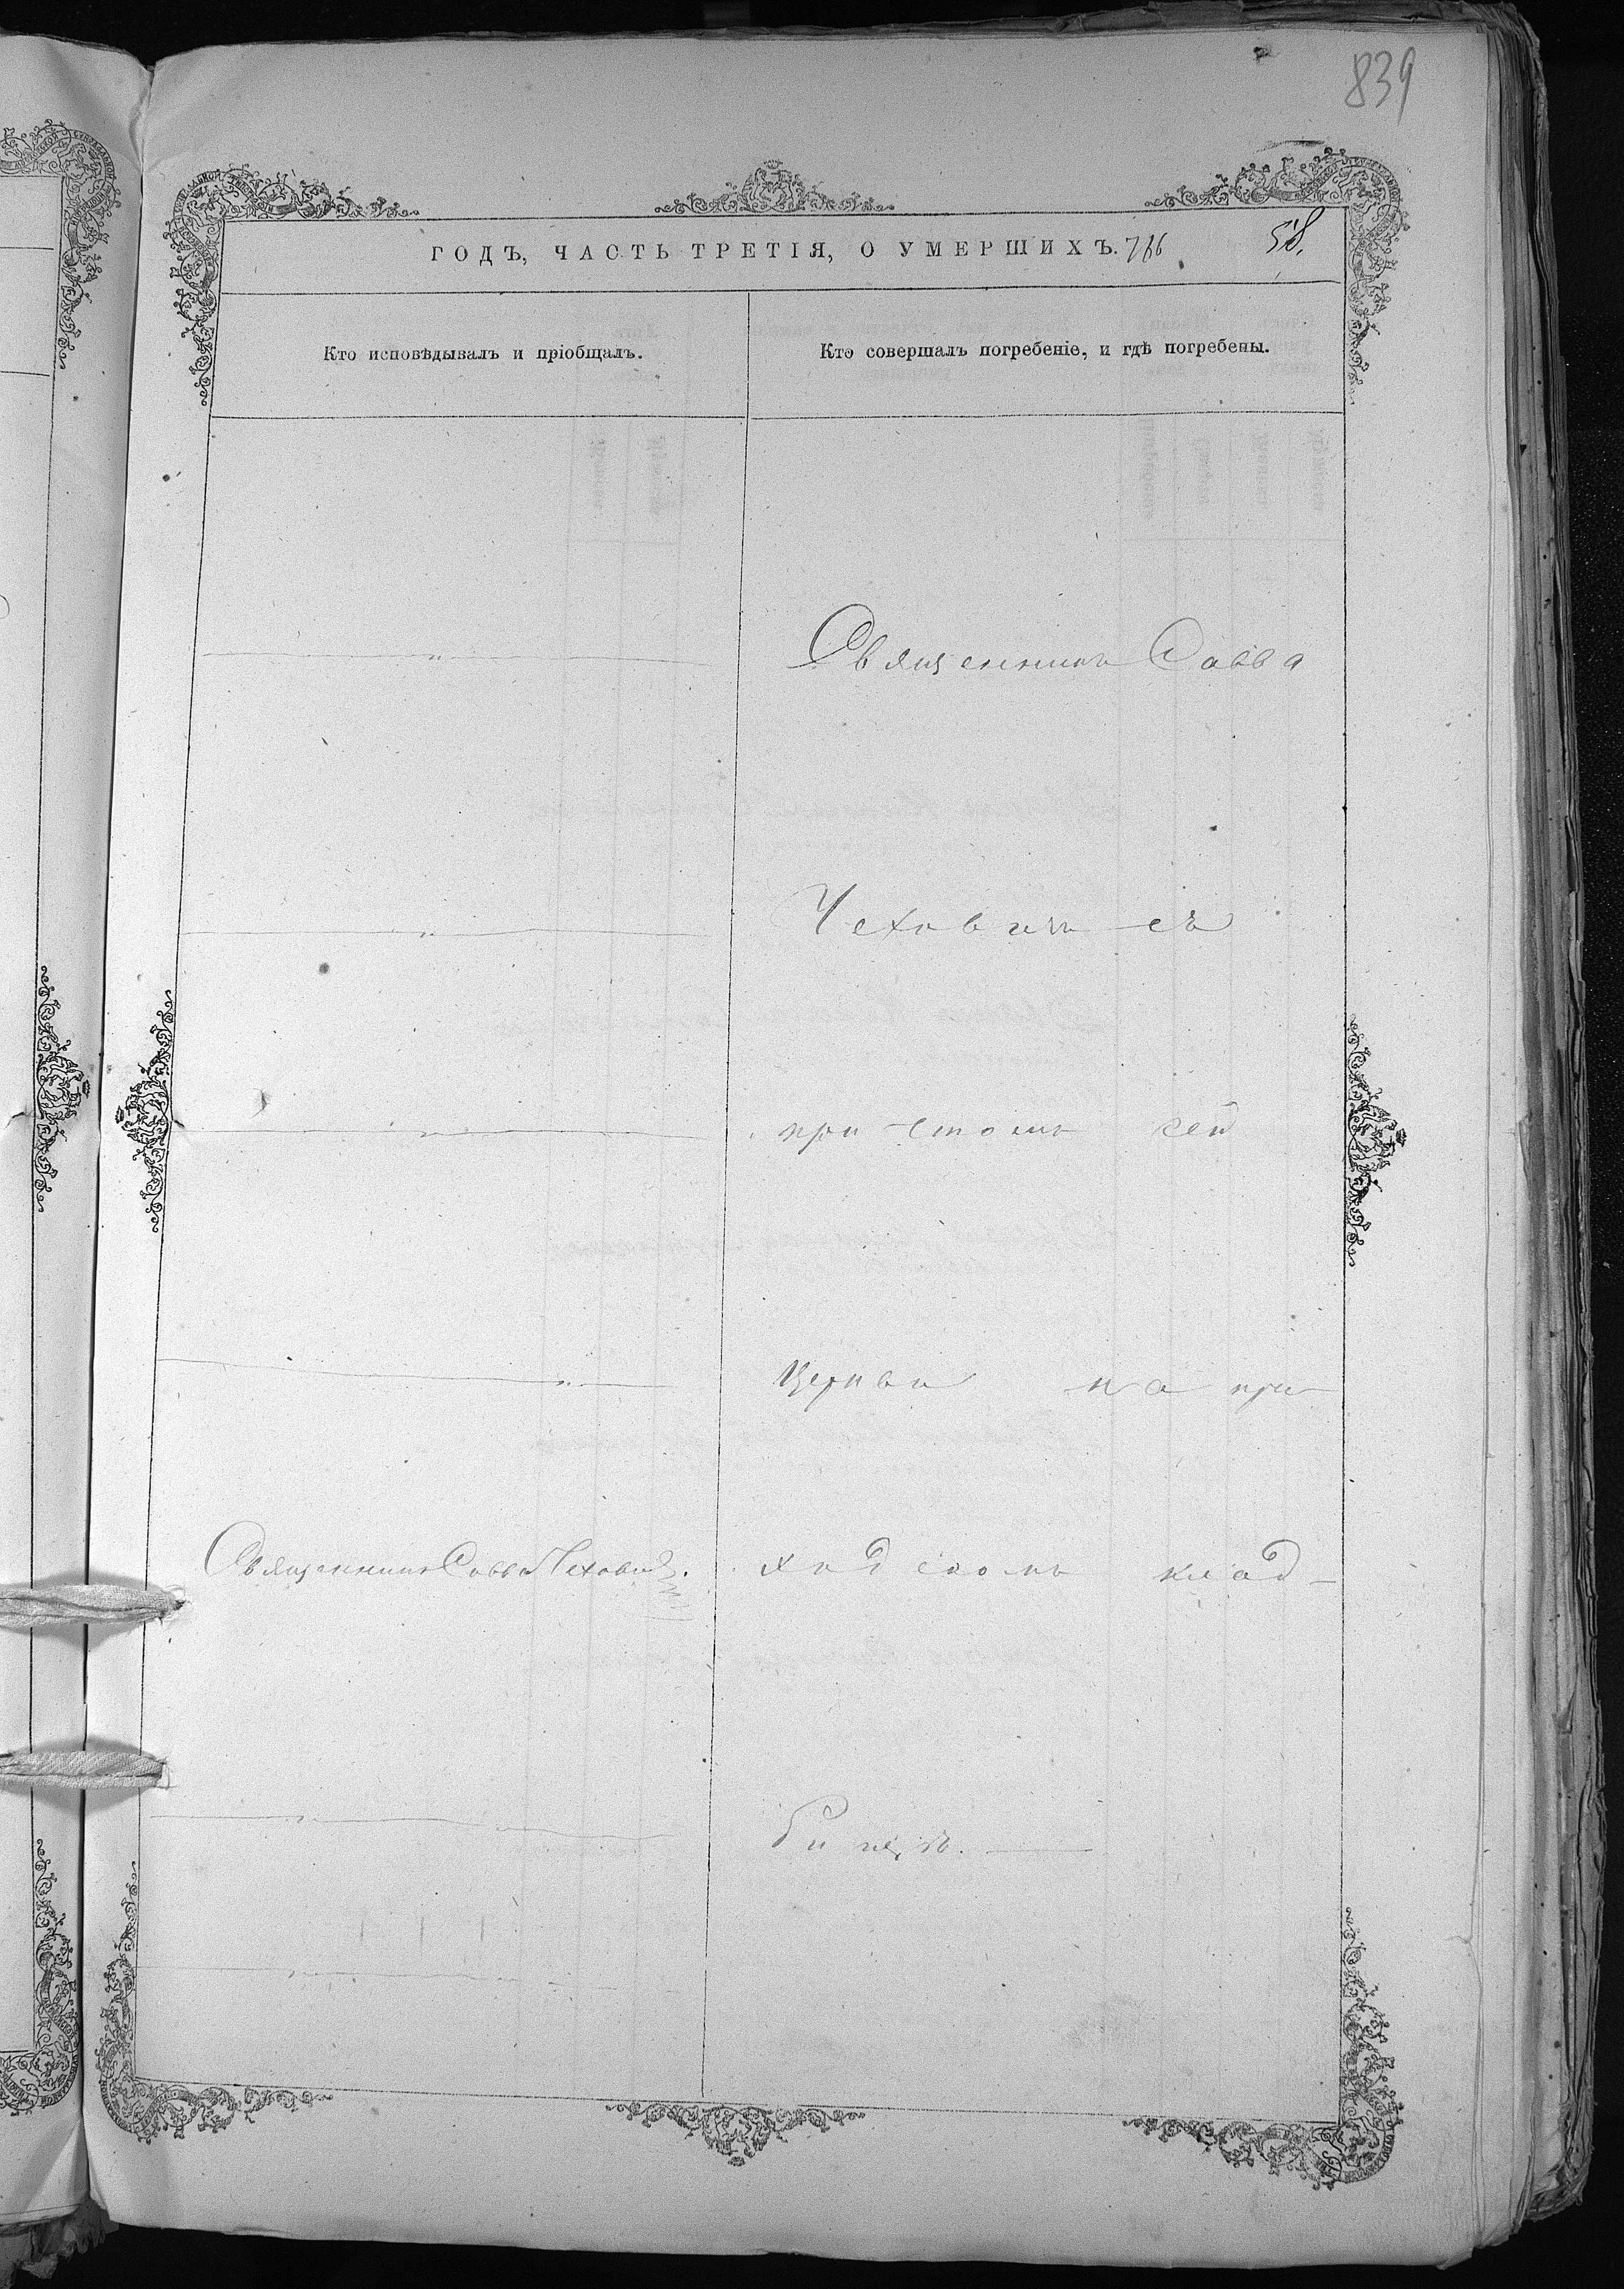 839
ГОДЪ, ЧАСТЬ ТРЕТІЯ, О УМЕРШИХЪ. 58.
Кто исповѣдывалъ и пріобщалъ.
Кто совершалъ погребеніе, и гдѣ погребены.
Священникъ Савва
Чеховичъ съ
при-чтомъ сей
Церкви на при-
Священникъ Савва Чеховичъ.
ходскомъ клад-
бищѣ.